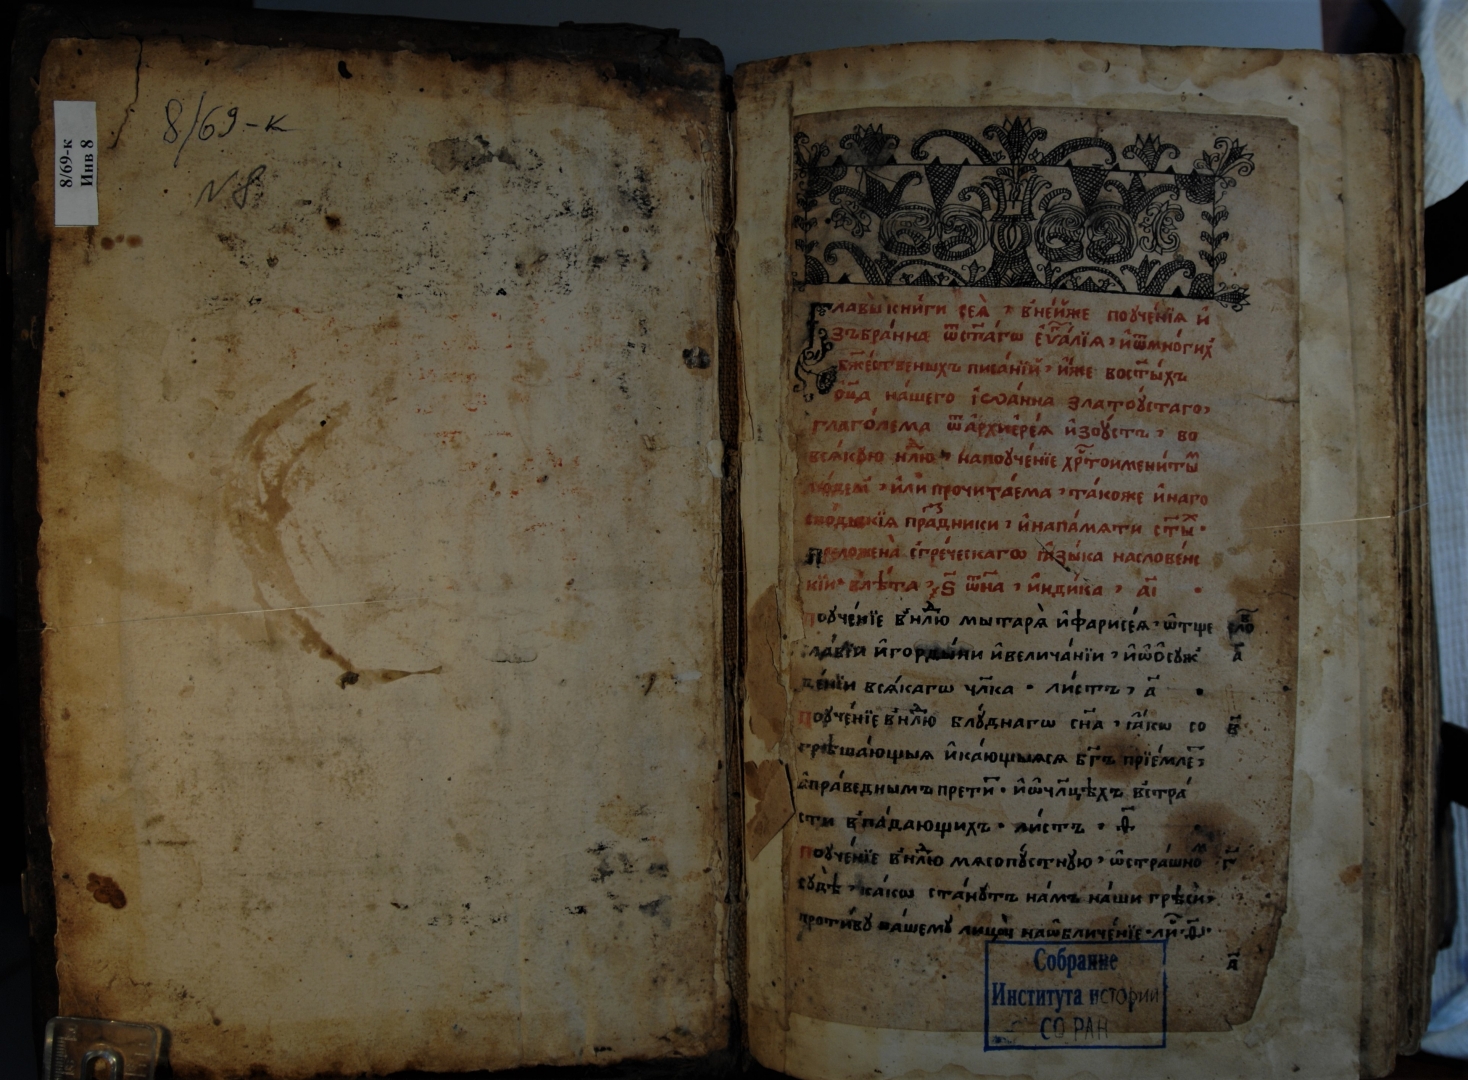 8/69-к
Инв 8
8/69-к
N 8
Главы книги сея̀, в̾не́йже поуче́нїѧ и҆
зъбра́нна ѿст҃а́гѡ є҆ѵⷢ҇а́лїѧ, и҆ѿмно́гихъ
бж҃е́ственыхъ писа́нїй, и҆́же восты҃́хъ
ѻ҆ц҃а на́шего і҆ѡа́нна златоу́стаго,
глаго́лема ѿа҆рхїере́ѧ и҆зоу́стъ, во
всѧ́кую нⷣлю напоуче́нїе хрⷭ҇тоимени́тыⷨ
лю́демⷨ, и҆лѝ прочита́ема, та́коже и҆наго
спо́дьскїѧ пра́здники, и҆напа́мѧти ст҃ыⷯ.
преложена̀ сгре́ческагѡ ꙗ҆зы́ка насловене́с
кїи влѣ́та, ҂ѕ҃ ѿн҃а, и҆нди́кта, а҃і
Поуче́нїе в̾нⷣлю мытарѧ̀ и҆фарисе́ѧ, ѡ҆тще
сло́вⷪ҇
сла́вїи и҆горды́ни и҆велича́нїи, и҆ѡ҆ѻ҆суж
а҃
де́нїи всѧ́кагѡ чл҃ка. ли́стъ, а҃.
Поуче́нїе в̾нⷣлю блу́днагѡ сн҃а, ꙗ҆́кѡ со
в҃
грѣша́ющыѧ и҆ка́ющыѧсѧ бг҃ъ прїе́млеⷮ,
а҆пра́веднымъ прети́тⷮ. и҆ѡ҆чл҃цѣ́хъ в̾стра́
сти в̾па́дающихъ. ли́стъ. ѳ҃
Поуче́нїе в̾нⷣлю мѧсопу́стную, ѡ҆стра́шноⷨ
г҃
судѣ̀, ка́кѡ ста́нутъ на́мъ на́ши грѣсѝ,
проти́ву на́шему лицу̀ наѡ҆бличе́нїе. лиⷭ҇.
д҃
Собрание
Института истории
СО РАН